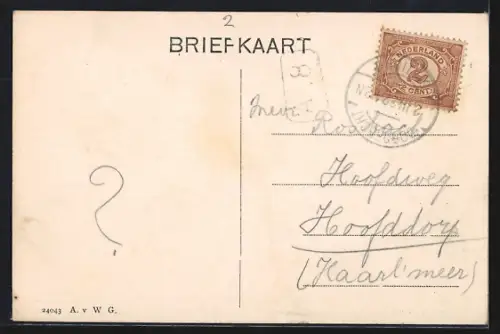 2
BRIEFKAART
NEDERLAND
2
CENT
Mevr.
Hoofdweg
Hoofddorp
(Haarl'meer)
?
24043 A. v W G.